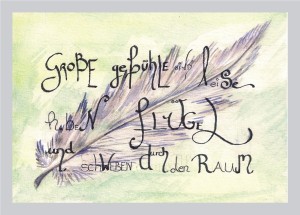 GROßE gefühLE sind leiSe
haBeN flÜGEL
und schWEBEN durch den RAUM